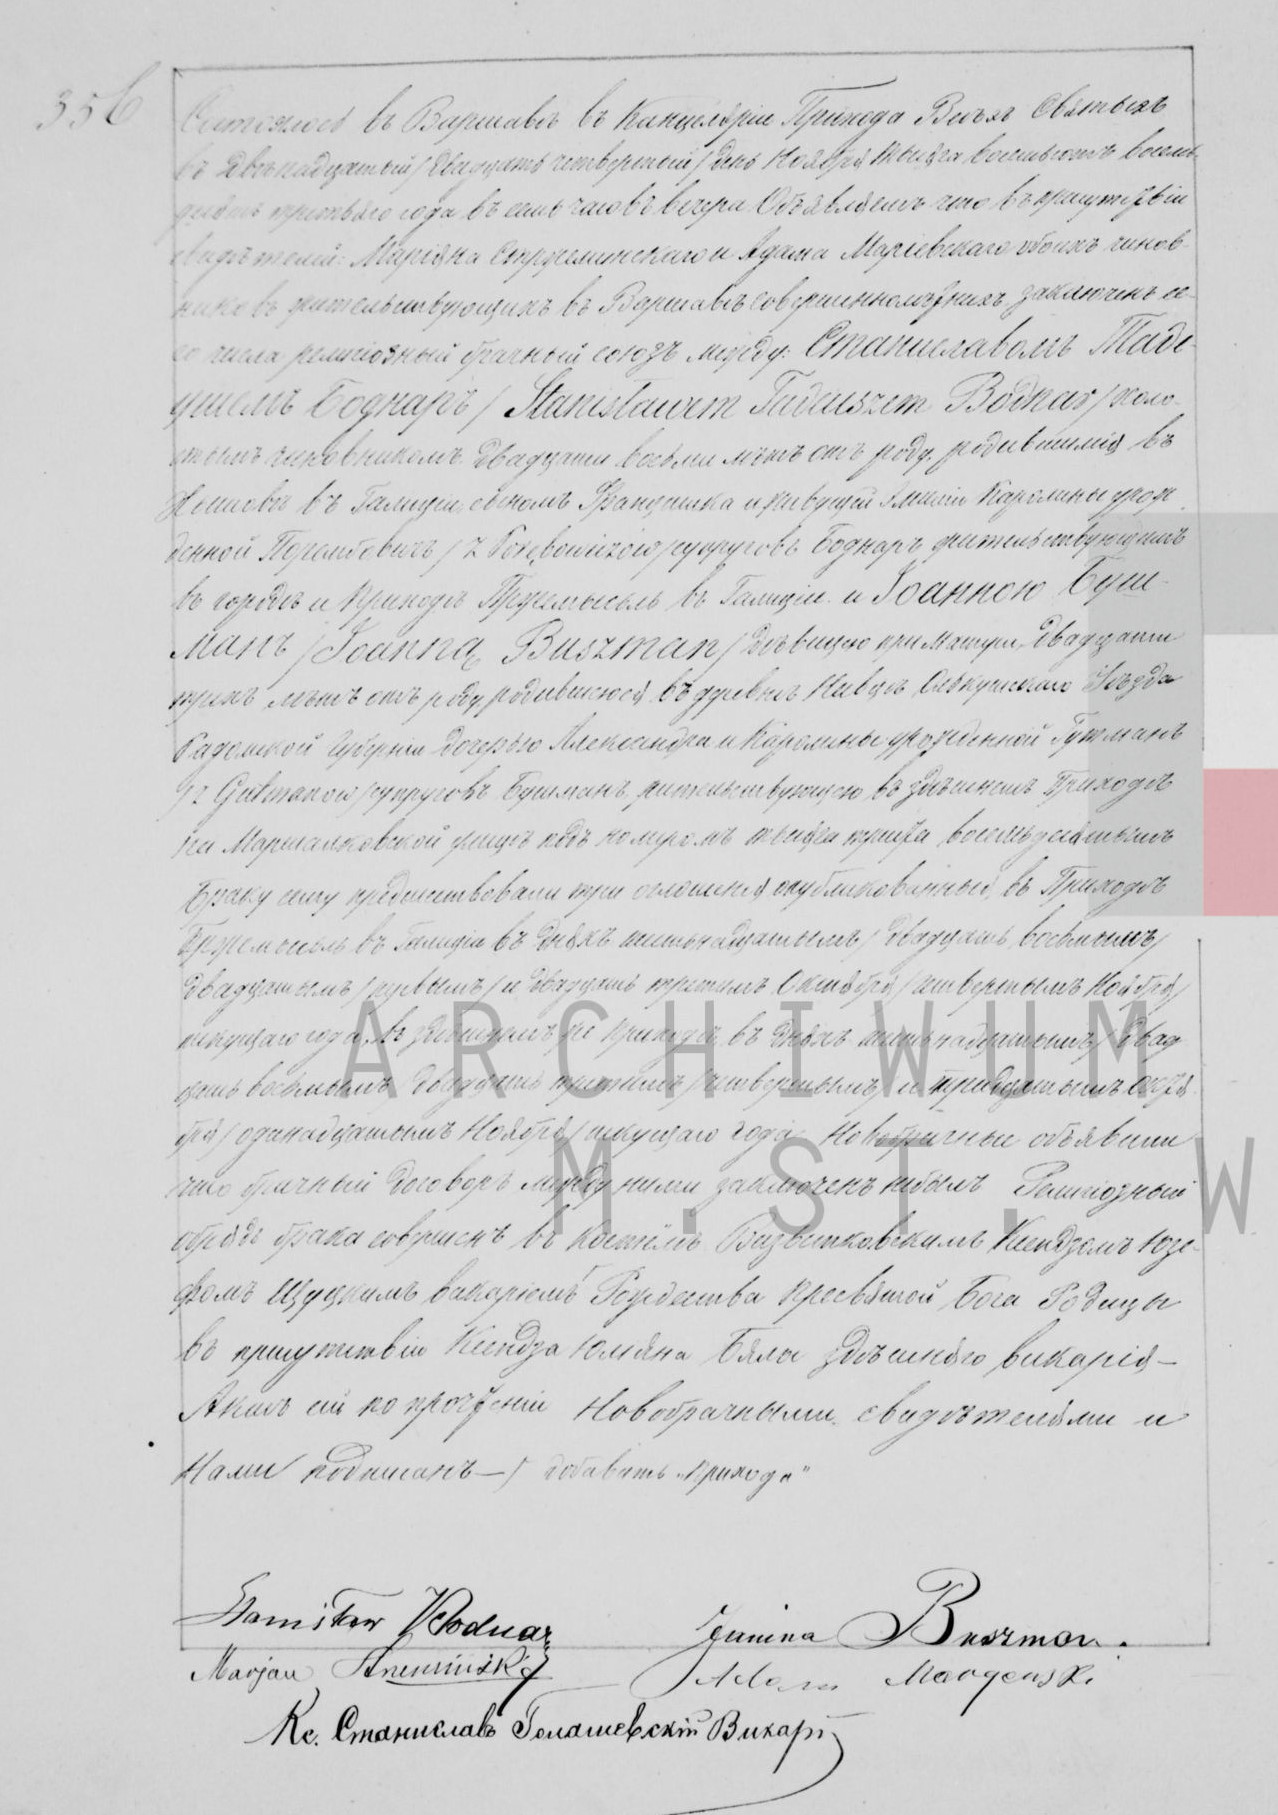 356
Состоялось въ Варшавѣ въ Канцеляріи Прихода Всѣхъ Святыхъ
въ двѣнадцатый /двадцать четвертый/ день Ноября тысяча восемьсотъ восемь-
десять третьяго года въ семь часовъ вечера. Объявляемъ что въ присутствіи
свидѣтелей: Маріяна и Адама обоихъ чинов-
никовъ жительствующихъ въ Варшавѣ совершеннолѣтнихъ, заключенъ се-
го числа религіозный брачный союзъ между: Станиславомъ Таде-
ушемъ Боднаръ / Stanisławem Tadeuszem Bodnar / холо-
стымъ чиновникомъ двадцати восьми лѣтъ отъ роду, родившимся въ
въ Галиціи, сыномъ Францишка и живущей Каролины урож-
денной /z супруговъ Боднаръ жительствующимъ
въ городѣ и Приходѣ Пржемысль въ Галиціи. и Іоанною Буш-
манъ / Joanną Buszman / дѣвицею при Матери, двадцати
трехъ лѣтъ отъ роду, родившеюся въ деревнѣ Олькушскаго Уѣзда
Радомской Губерніи дочерью Александра и Каролины урожденной Гутманъ
/z Gutmanow/ супруговъ Бушманъ, жительствующею въ здѣшнемъ Приходѣ
на Маршалковской улицѣ подъ номеромъ тысяча восемьдесятымъ
Браку сему предшествовали три оглашенія опубликованныя, въ Приходѣ
Пржемысль въ Галиціи въ дняхъ шестьнадцатымъ / двадцать восьмымъ /
двадцатымъ /первымъ/ и двадцать третимъ Октября /четвертымъ Ноября/
текущаго года, въ здѣшнемъ же приходѣ въ дняхъ шестьнадцатымъ / двад
цать восьмымъ / двадцать третимъ /четвертымъ/ и тридцатымъ Октя
бря / одинадцатымъ Ноября / текущаго года. Новобрачные объявили
что брачный договоръ между ними заключенъ небылъ. Религіозный
обрядъ брака совершенъ въ Костёлѣ Визитковскимъ Ксендзомъ Юзе-
фомъ Щуцкимъ викаріемъ Рождества Пресвятой Бога Родицы
въ присутствіи Ксендза Юліяна Бялы здѣшняго викарія —
Актъ сей по прочтеніи Новобрачными, свидѣтелями и
Нами подписанъ — / добавить „Прихода"
ARCHIWUM
M. ST. W
Stanisław Bodnar
Janina Buszman.
Marjan
Adam
Кс. Станиславъ Викарій